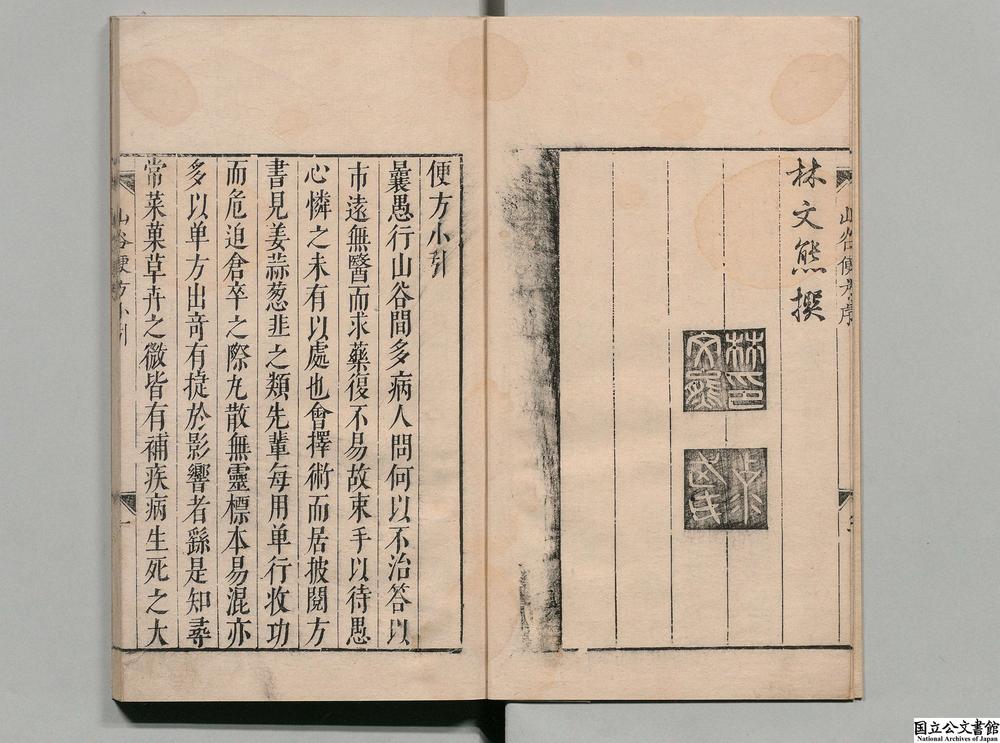 山谷便方序
林文熊撰
林文熊印
便方小引
曩愚行山谷間多病人問何以不治答以
市遠無醫而求藥復不易故束手以待愚
心憐之未有以處也會擇術而居披閱方
書見姜蒜葱韭之類先輩每用单行收功
而危迫倉卒之際丸散無靈標本易混亦
多以单方出奇有捷於影響者繇是知尋
常菜菓草卉之微皆有補疾病生死之大
山谷便方小引
一
国立公文書館
National Archives of Japan